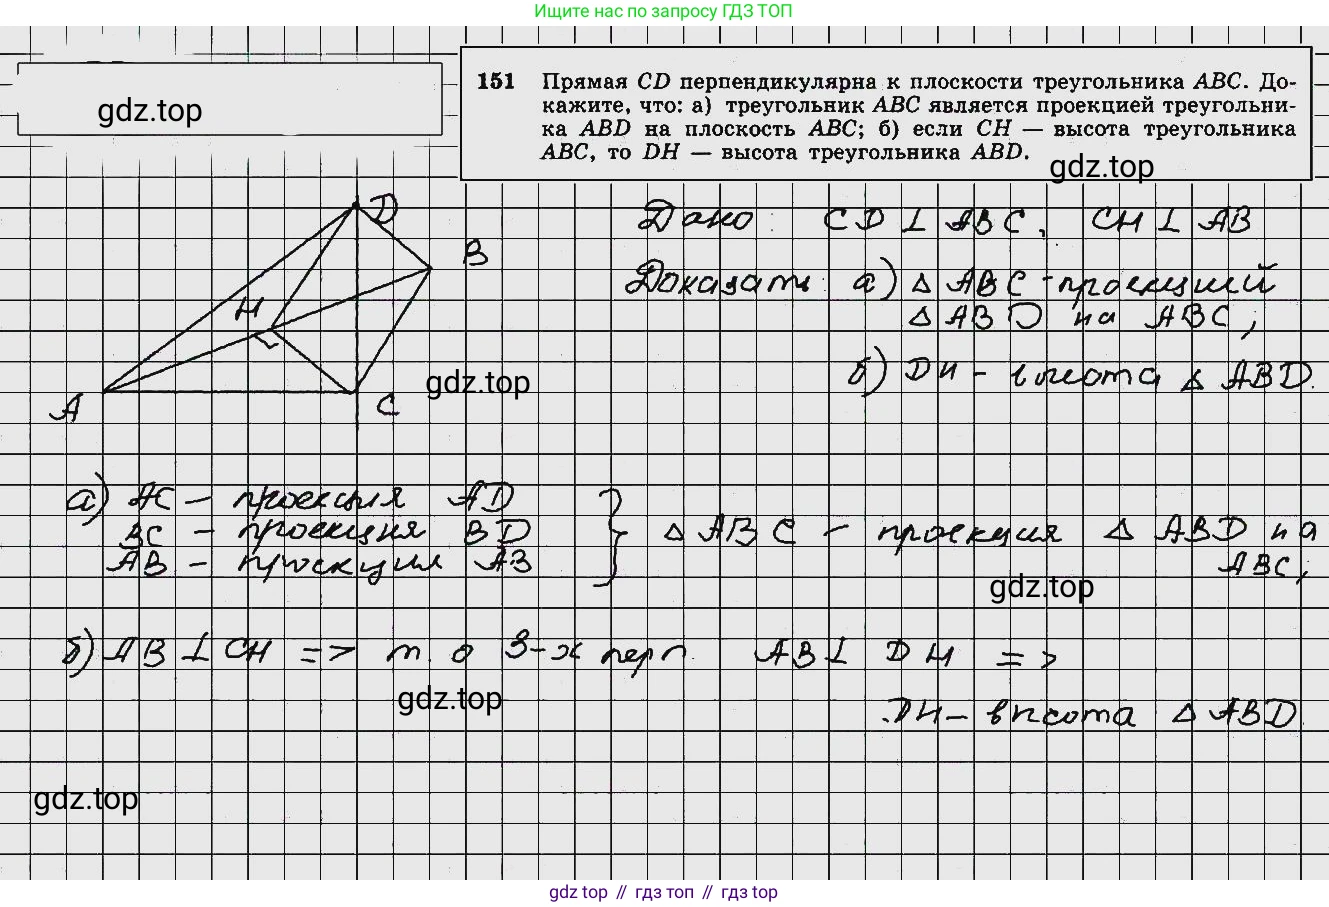 Ищите нас по запросу ГДЗ ТОП
gdz.top
151 Прямая CD перпендикулярна к плоскости треугольника ABC. До-
кажите, что: а) треугольник ABC является проекцией треугольни-
ка ABD на плоскость ABC; б) если CH — высота треугольника
ABC, то DH — высота треугольника ABD.
gdz.top
D
B
H
A
C
gdz.top
Дано: CD ⊥ ABC, CH ⊥ AB
Доказать: а) △ ABC - проекций
△ ABD на ABC;
б) DH - высота △ ABD.
а) AC - проекция AD
BC - проекция BD
AB - проекция AB
} △ ABC - проекция △ ABD на
ABC;
gdz.top
б) AB ⊥ CH => т. о 3-х перп. AB ⊥ DH =>
gdz.top
DH - высота △ ABD
gdz.top
gdz top // гдз топ // gdz top